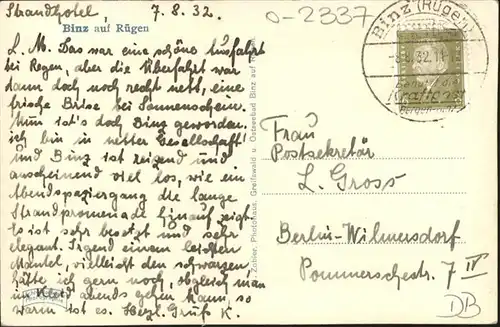 Strandhotel, 7.8.32.
0-2337
Binz auf Rügen
L. M. Das war eine schöne Ausfahrt
bei Regen, aber die Überfahrt war
dann doch noch recht nett, eine
frische Brise bei Sonnenschein.
Nun ist's doch Binz geworden.
ich bin in netter Gesellschaft
und Binz ist reizend und
anscheinend viel los, wie ein
Abendspaziergang die lange
Strandpromenade hinauf zeigt.
Es ist sehr besetzt und sehr
elegant. Irgend einen leichten
Mantel, vielleicht den schwarzen,
hätte ich gern noch, obgleich man
im Kleid abends gehen kann, so
warm ist es. Herzl. Gruß K.
Zobler, Photohaus, Greifswald u. Ostseebad Binz auf
Binz (Rügen)
8.32.11
Frau
Postsekretär
L. Gross
Berlin-Wilmersdorf
Pommerschestr. 7 IV
DB